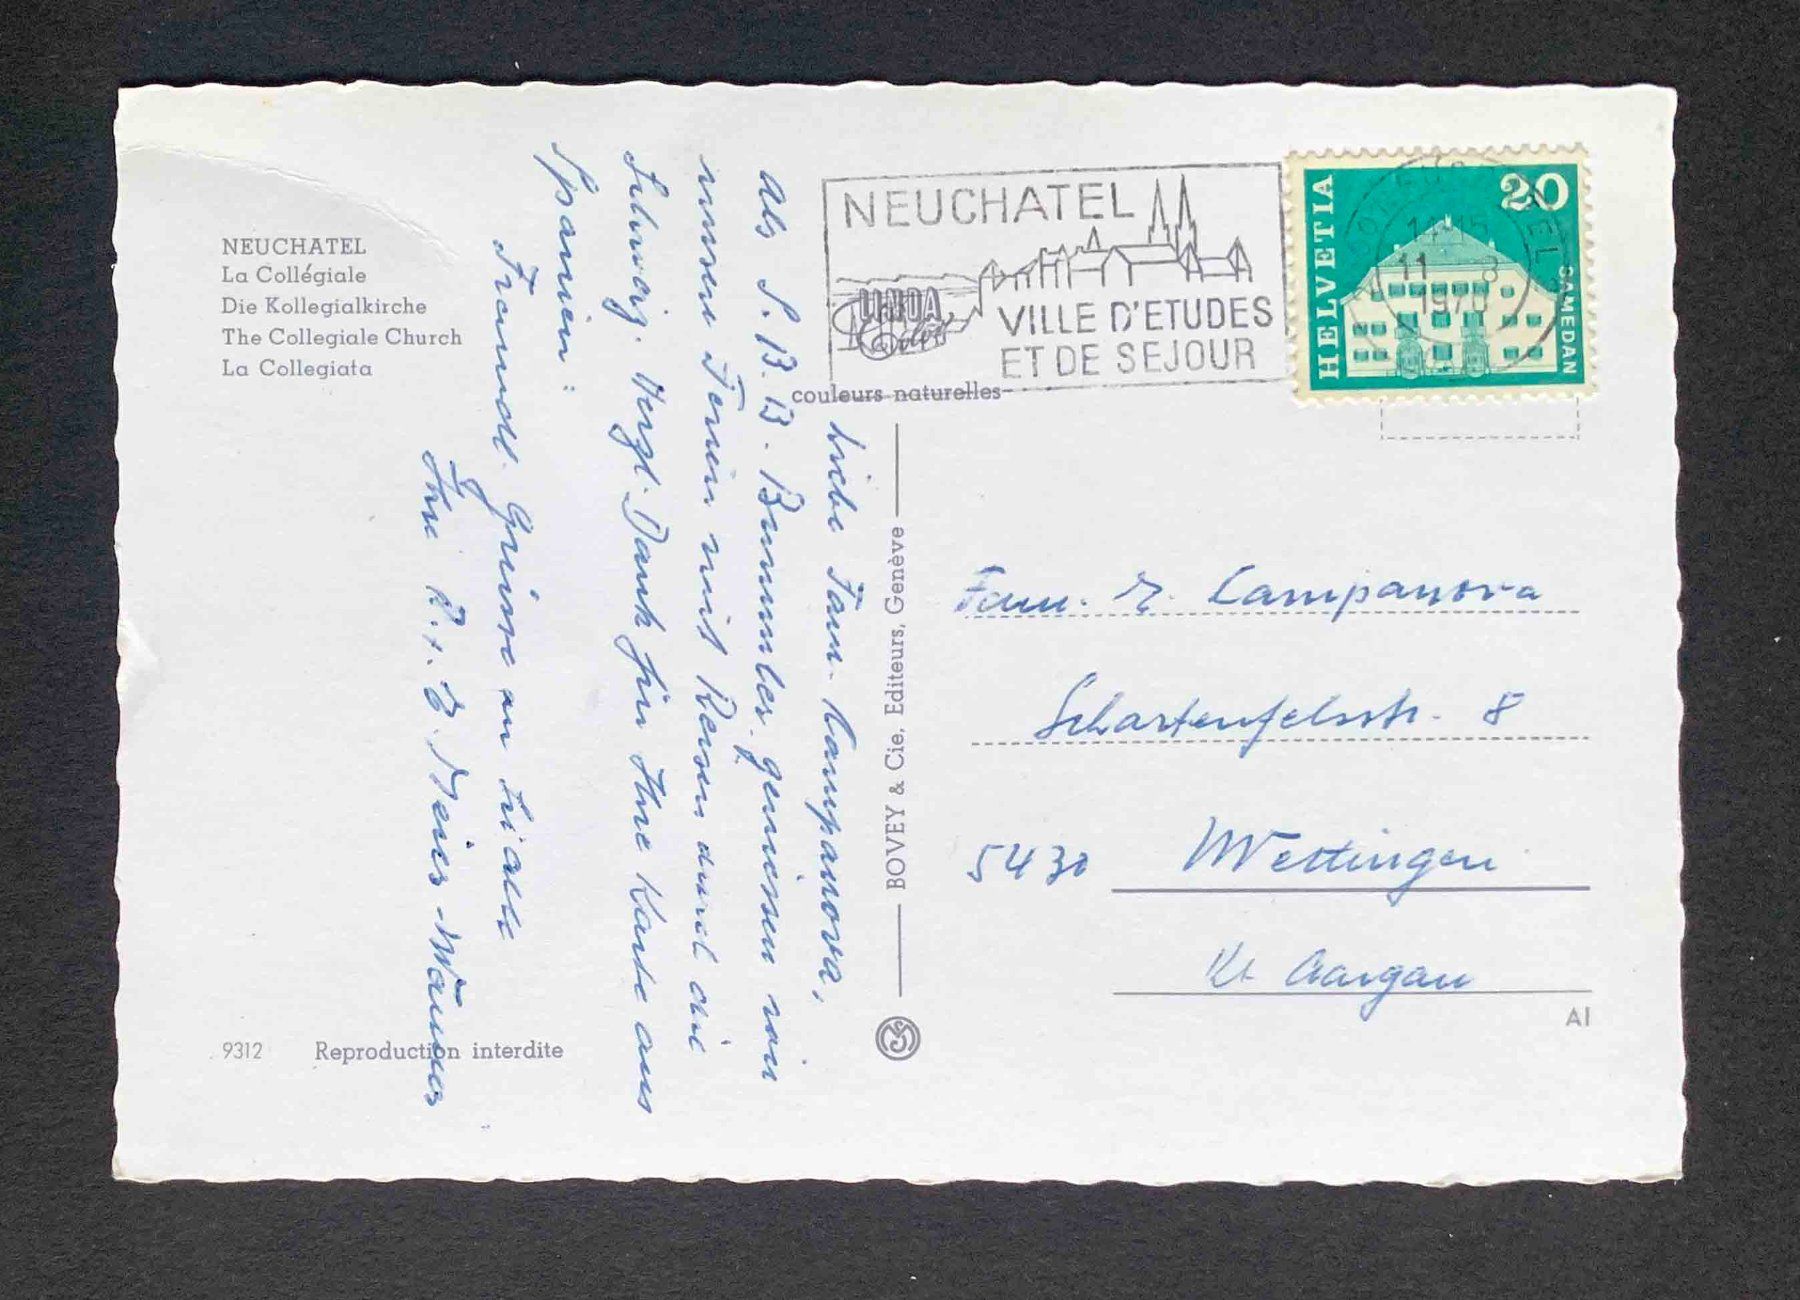 NEUCHATEL
La Collégiale
Die Kollegialkirche
The Collegiale Church
La Collegiata
Liebe Fam. Campanova,
Als S.B.B. Bummler geniessen wir
unsere Ferien mit Reisen durch die
Schweiz. Herzl. Dank für Ihre Karte aus
Spanien!
Freundl. Grüsse an Sie alle
Ihre R. + E. Meier-Wanner
9312 Reproduction interdite
NEUCHATEL
VILLE D'ETUDES
ET DE SEJOUR
UNDA
Color
couleurs naturelles
BOVEY & Cie, Editeurs, Genève
HELVETIA
20
SAMEDAN
11 8
1970
Fam. E. Campanova
Schartenfelsstr. 8
5430 Wettingen
Kt. Aargau
AI